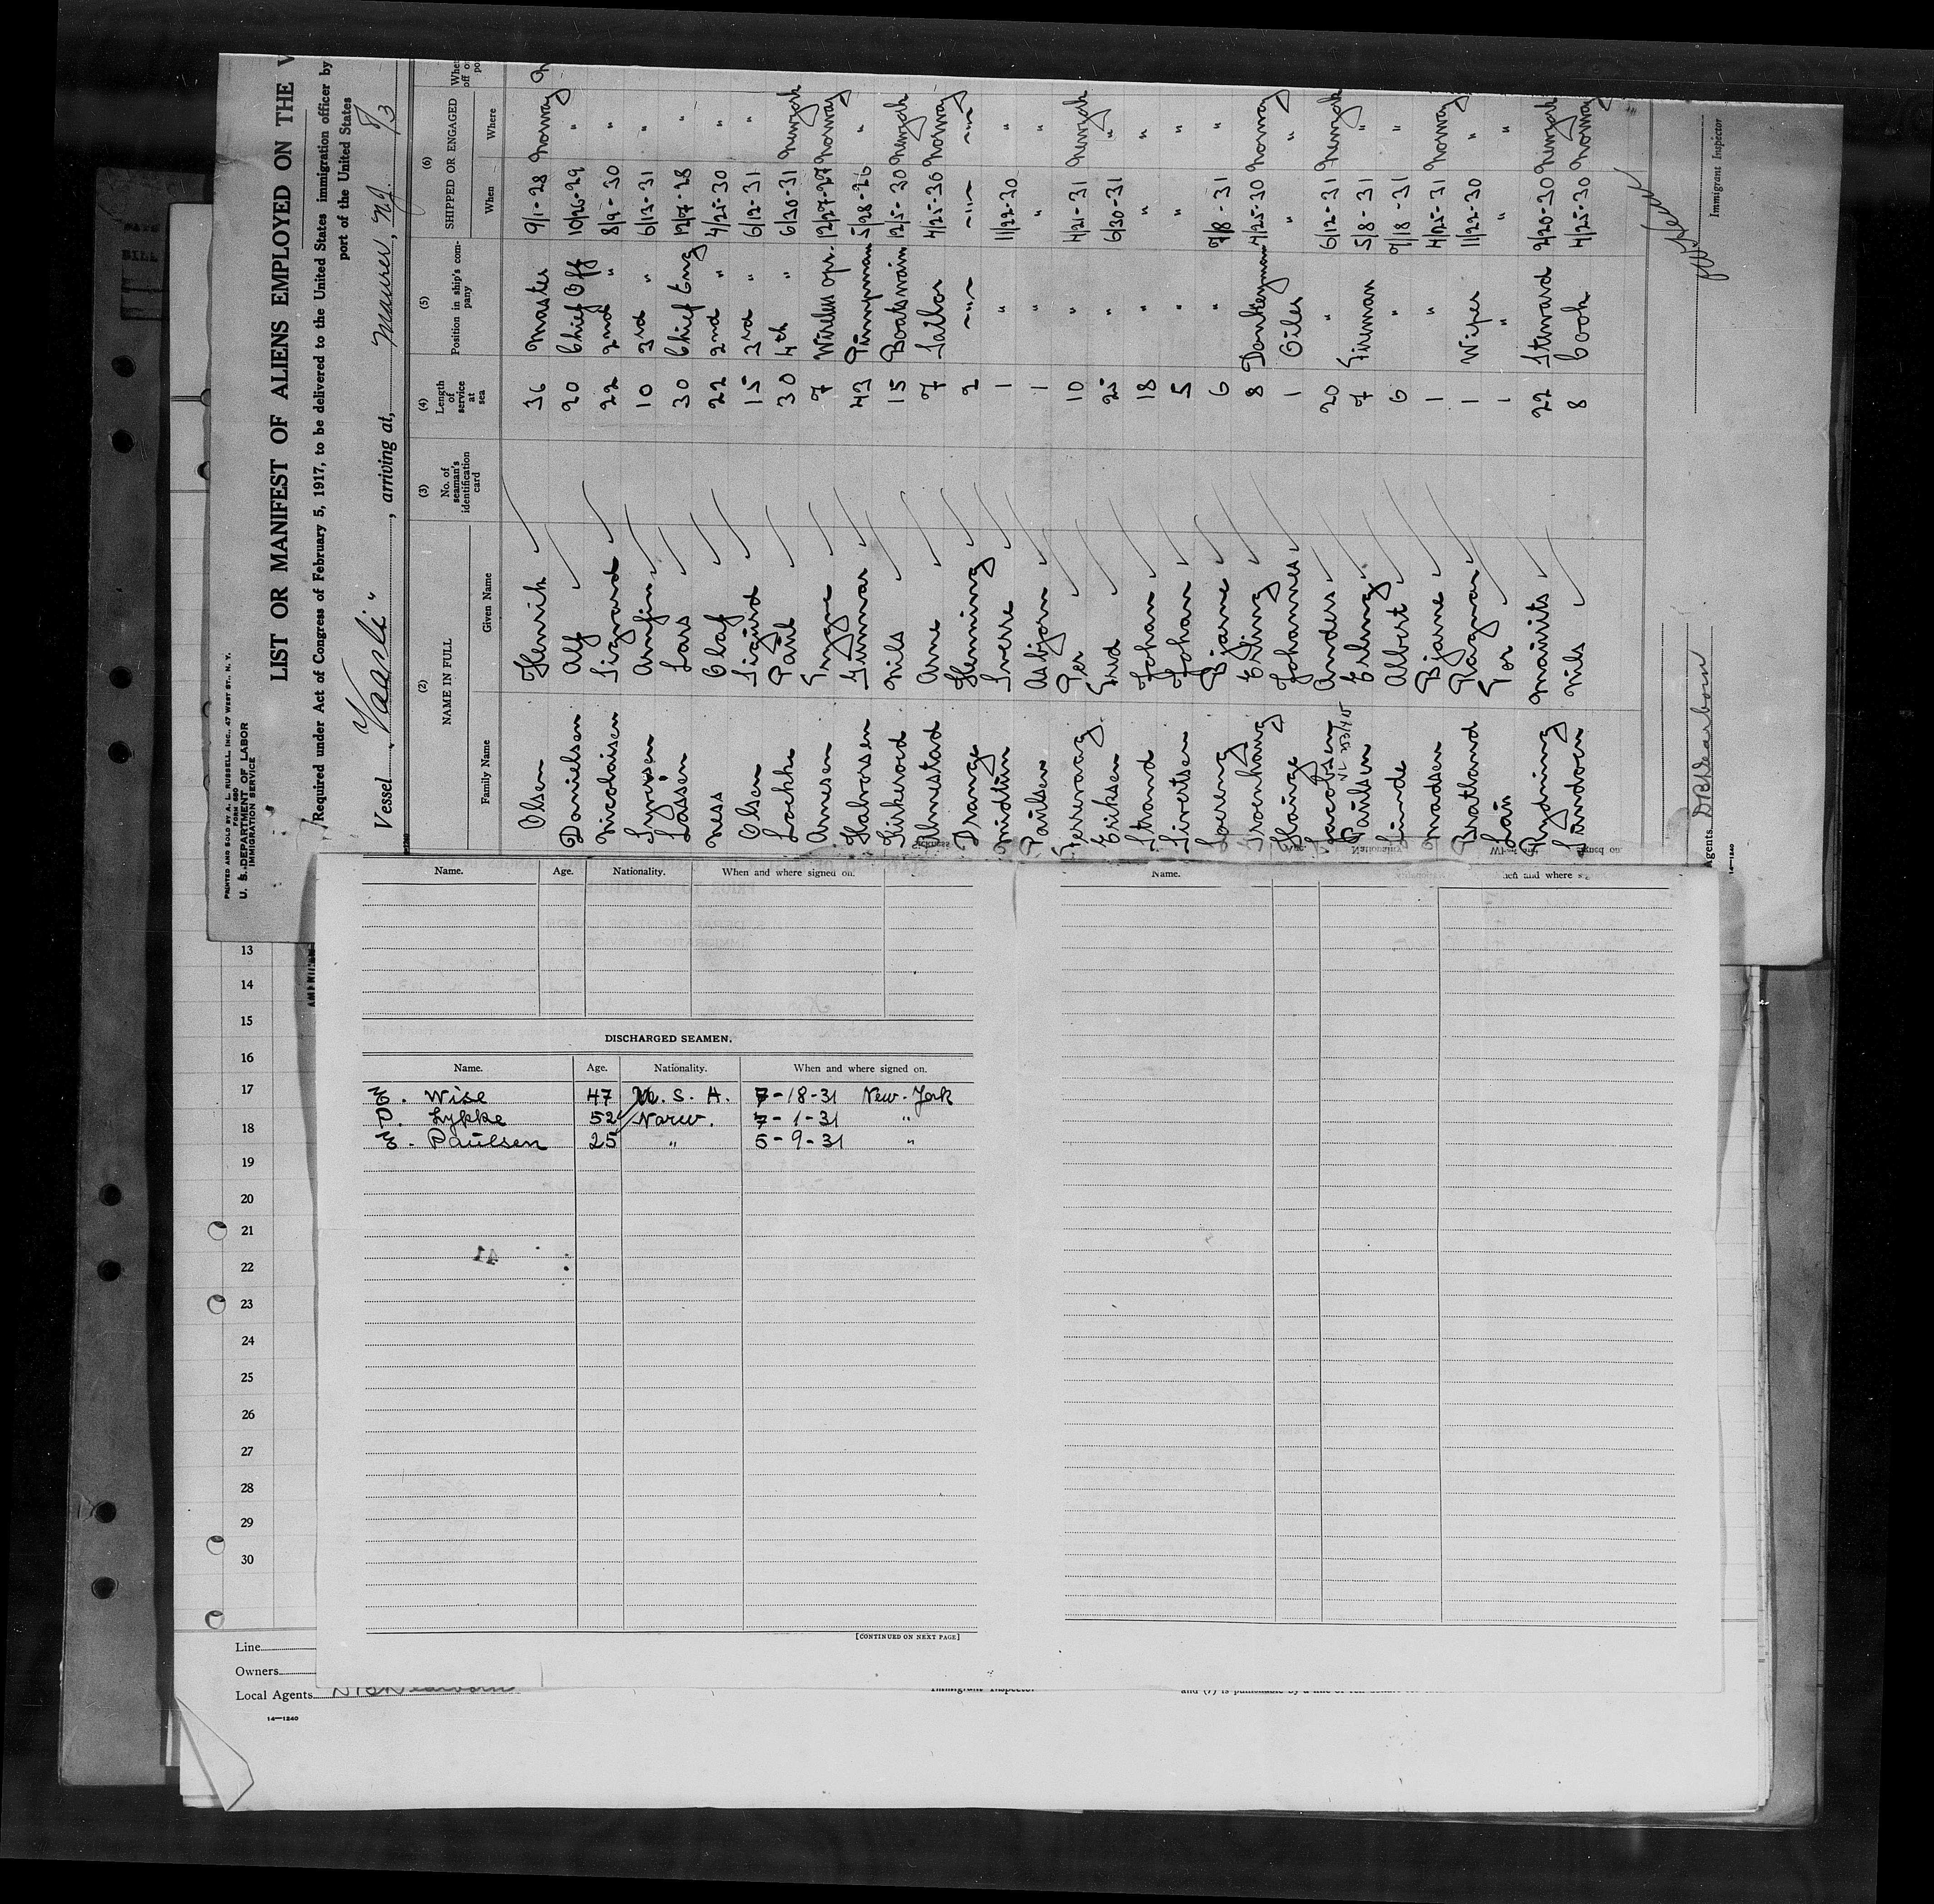 PRINTED AND SOLD BY A. L. RUSSELL, INC., 47 WEST ST., N. Y.
FORM 680
U. S. DEPARTMENT OF LABOR
IMMIGRATION SERVICE
LIST OR MANIFEST OF ALIENS EMPLOYED ON THE
Required under Act of Congress of February 5, 1917, to be delivered to the United States immigration officer by
port of the United States
Vessel "Vaarli", arriving at, Maurer, N.J.
(2) (3) (4) (5) (6)
NAME IN FULL No. of seaman's identification card Length of service at sea Position in ship's company SHIPPED OR ENGAGED
Family Name Given Name When Where
Olsen Henrik 36 Master 9/1-28 Norway
Danielsen Alf 20 Chief Off 10/26-29 "
Nicolaisen Sigvard 22 2nd " 8/9-30 "
Syversen Arnfin 10 3rd " 6/13-31 "
Lassen Lars 30 Chief Eng 12/7-28 "
Ness Olaf 22 2nd " 4/25-30 "
Olsen Sigurd 15 3rd " 6/12-31 "
Loekke Paul 30 4th " 6/30-31 Newyork
Arnesen Yngve 7 Wireless opr. 12/27-27 Norway
Halvorsen Gunnar 43 Pumpman 5/28-26 "
Kirkerod Nils 15 Boatswain 12/5-30 Newyork
Almestad Arne 7 Sailor 4/25-30 Norway
Drange Henning 2
Midttun Sverre 1 " 11/22-30 "
Paulsen Asbjorn 1 " " "
Ferrevaag Per 10 " 4/21-31 Newyork
Eriksen Fred 25 " 6/30-31 "
Strand Johan 18 " " "
Sivertsen Johan 5 " " "
Soereng Bjarne 6 " 7/8-31 "
Troenhaug Erling 8 Donkeyman 4/25-30 Norway
Hauge Johannes 1 Oiler " "
Jacobsen Anders 20 " 6/12-31 Newyork
Paulsen Erling 7 Fireman 5/8-31 "
Linde Albert 6 " 7/18-31 "
Madsen Bjarne 1 " 4/25-31 Norway
Bratland Ragnar 1 Wiper 11/22-30 "
Lan Tor 1 " " "
Rydning Maurits 22 Steward 2/20-30 Newyork
Lundoen Nils 8 Cook 4/25-30 Norway
Agents D B Dearborn
Immigrant Inspector
14—1240
Name. Age. Nationality. When and where signed on.
DISCHARGED SEAMEN.
Name. Age. Nationality. When and where signed on.
E. Wise 47 U. S. A. 7-18-31 New-York
P. Lykke 52 Norw. 7-1-31 "
E. Paulsen 25 " 5-9-31 "
[CONTINUED ON NEXT PAGE]
Name.
13
14
15
16
17
18
19
20
21
22
23
24
25
26
27
28
29
30
Line
Owners
Local Agents
Immigrant Inspector
14—1240